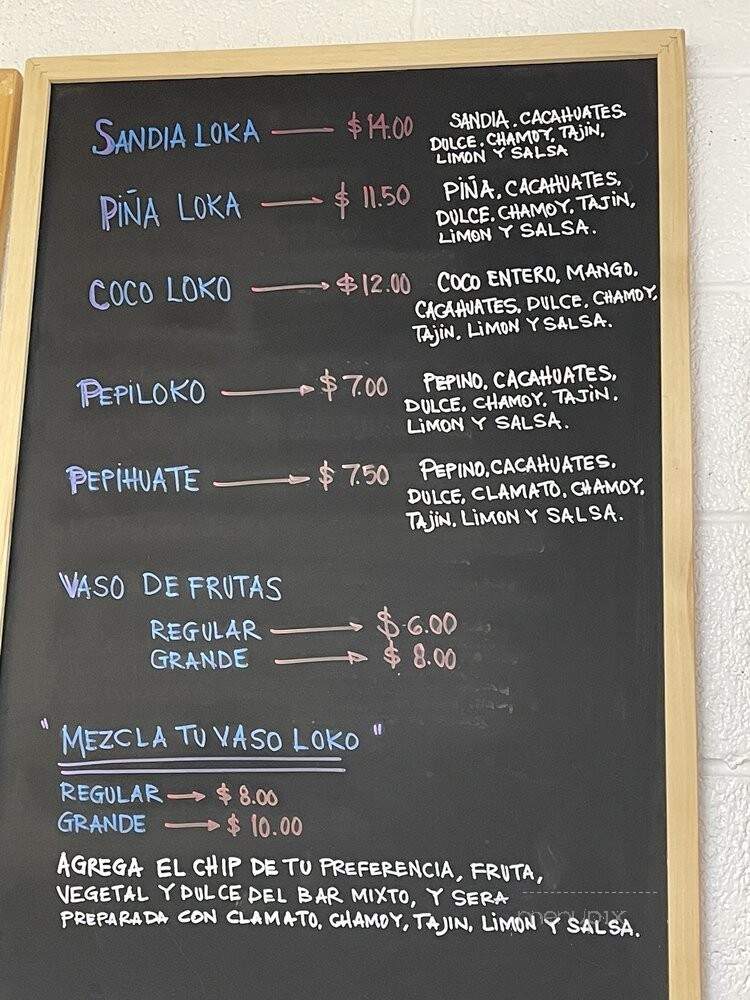 SANDIA LOKA $14.00 SANDIA. CACAHUATES.
DULCE. CHAMOY, TAJIN,
LIMON Y SALSA
PIÑA LOKA $11.50 PIÑA, CACAHUATES,
DULCE. CHAMOY, TAJIN,
LIMON Y SALSA.
COCO LOKO $12.00 COCO ENTERO, MANGO,
CACAHUATES, DULCE, CHAMOY,
TAJIN, LIMON Y SALSA.
PEPILOKO $7.00 PEPINO, CACAHUATES,
DULCE, CHAMOY, TAJIN.
LIMON Y SALSA.
PEPIHUATE $7.50 PEPINO, CACAHUATES.
DULCE, CLAMATO, CHAMOY,
TAJIN, LIMON Y SALSA.
VASO DE FRUTAS
REGULAR $6.00
GRANDE $8.00
"MEZCLA TU VASO LOKO"
REGULAR $8.00
GRANDE $10.00
AGREGA EL CHIP DE TU PREFERENCIA, FRUTA,
VEGETAL Y DULCE DEL BAR MIXTO, Y SERA
PREPARADA CON CLAMATO, CHAMOY, TAJIN, LIMON Y SALSA.
menupix